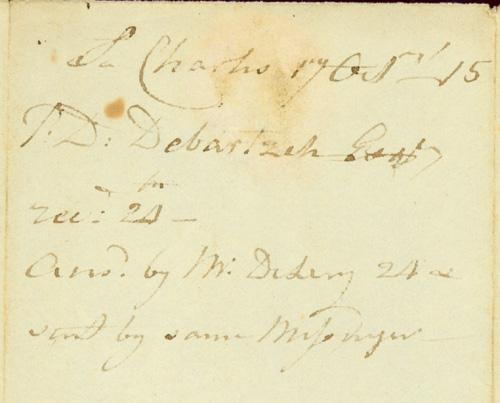 St Charles 17 Octr 15
P: D: Debartzch Esqr
recd: 24th —
Ansd. by Mr: Delery 24 &
sent by same Messenger